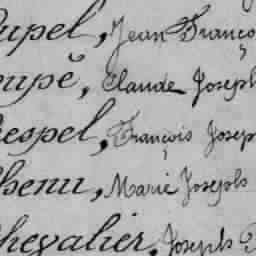 upel, Jean Franço
oupé, Claude Joseph
respel, François Josep
henu, Marie Joseph
hevalier, Joseph